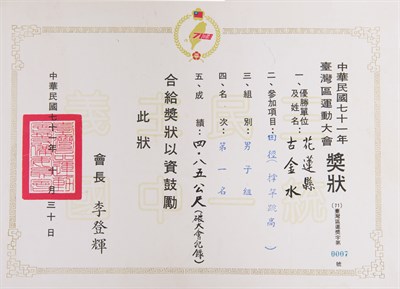 中華民國七十一年
臺灣區運動大會
獎狀
(71)臺灣區運獎字第0007號
一、優勝單位及姓名：花蓮縣 古金水
二、參加項目：田徑(撐竿跳高)
三、組別：男子組
四、名次：第一名
五、成績：四·八五公尺(破大會紀錄)
合給獎狀以資鼓勵
此狀
會長 李登輝
中華民國七十一年十月三十日